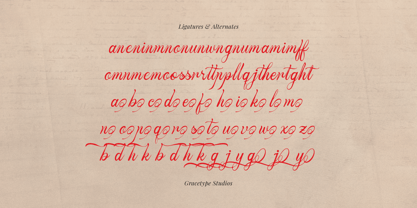 Ligatures & Alternates
aneninmncnunwngnumamimff
omnmemcossrrttppllgjthertght
aobocodoeofo hoiokolomo
nocopoqorosotouovowoxozo
bdhkbdhkgjygojoyo
Gracetype Studios